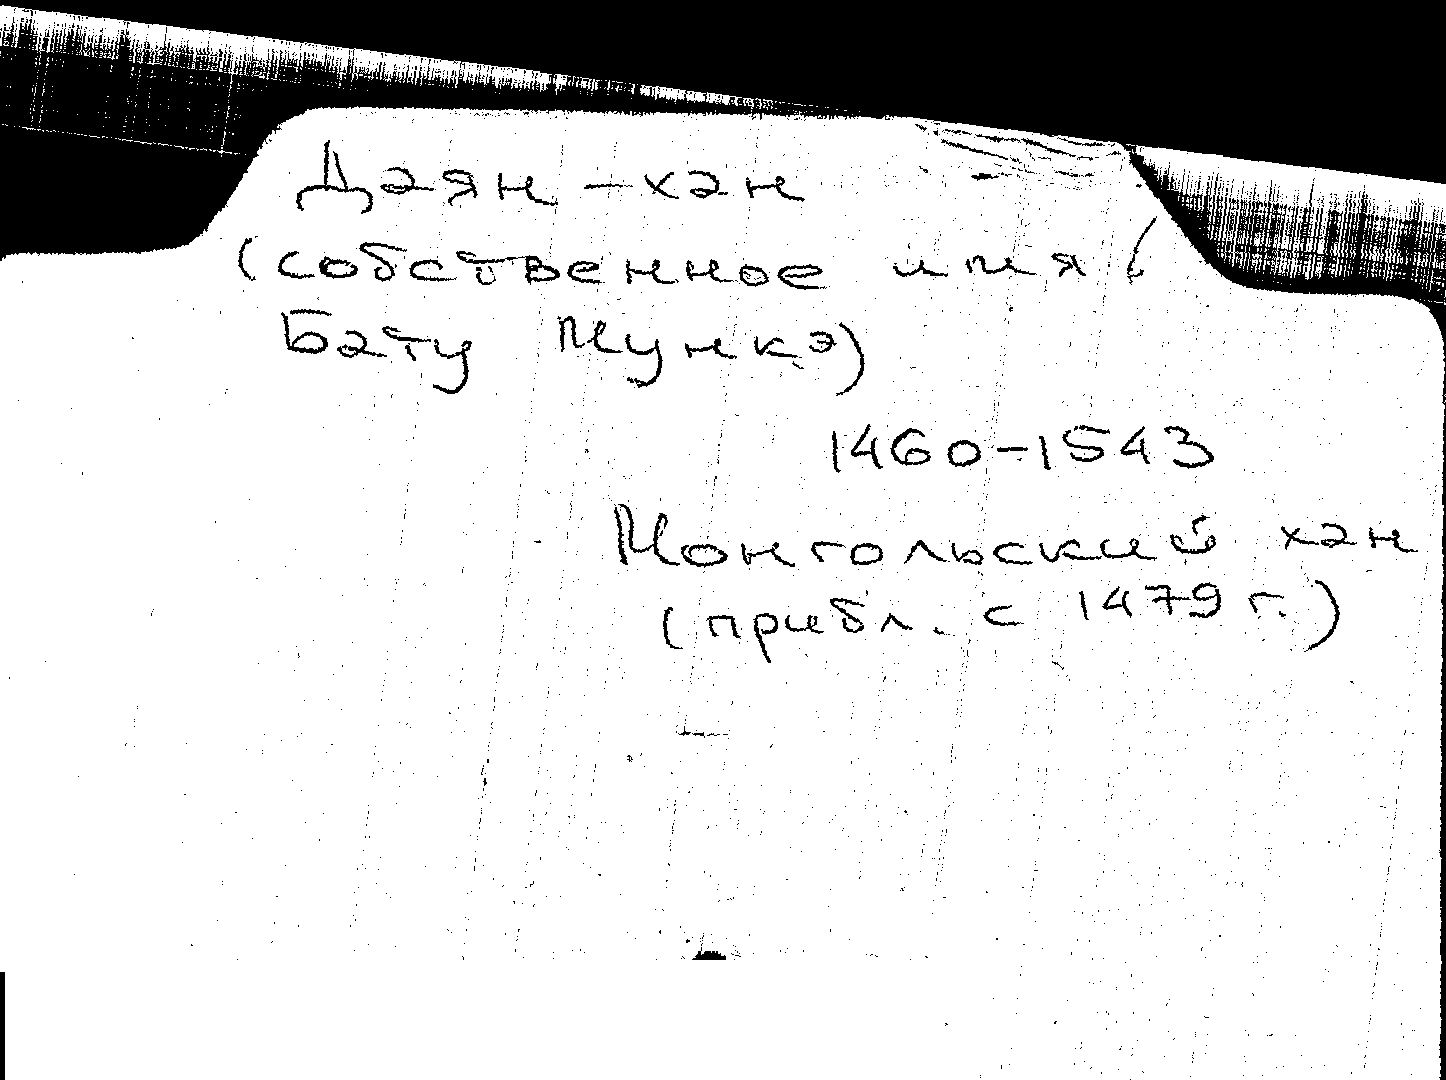 Даян-хан
(собственное имя (
Бату Мункэ)
1460-1543
Монгольский хан
(прибл. с 1479 г.)